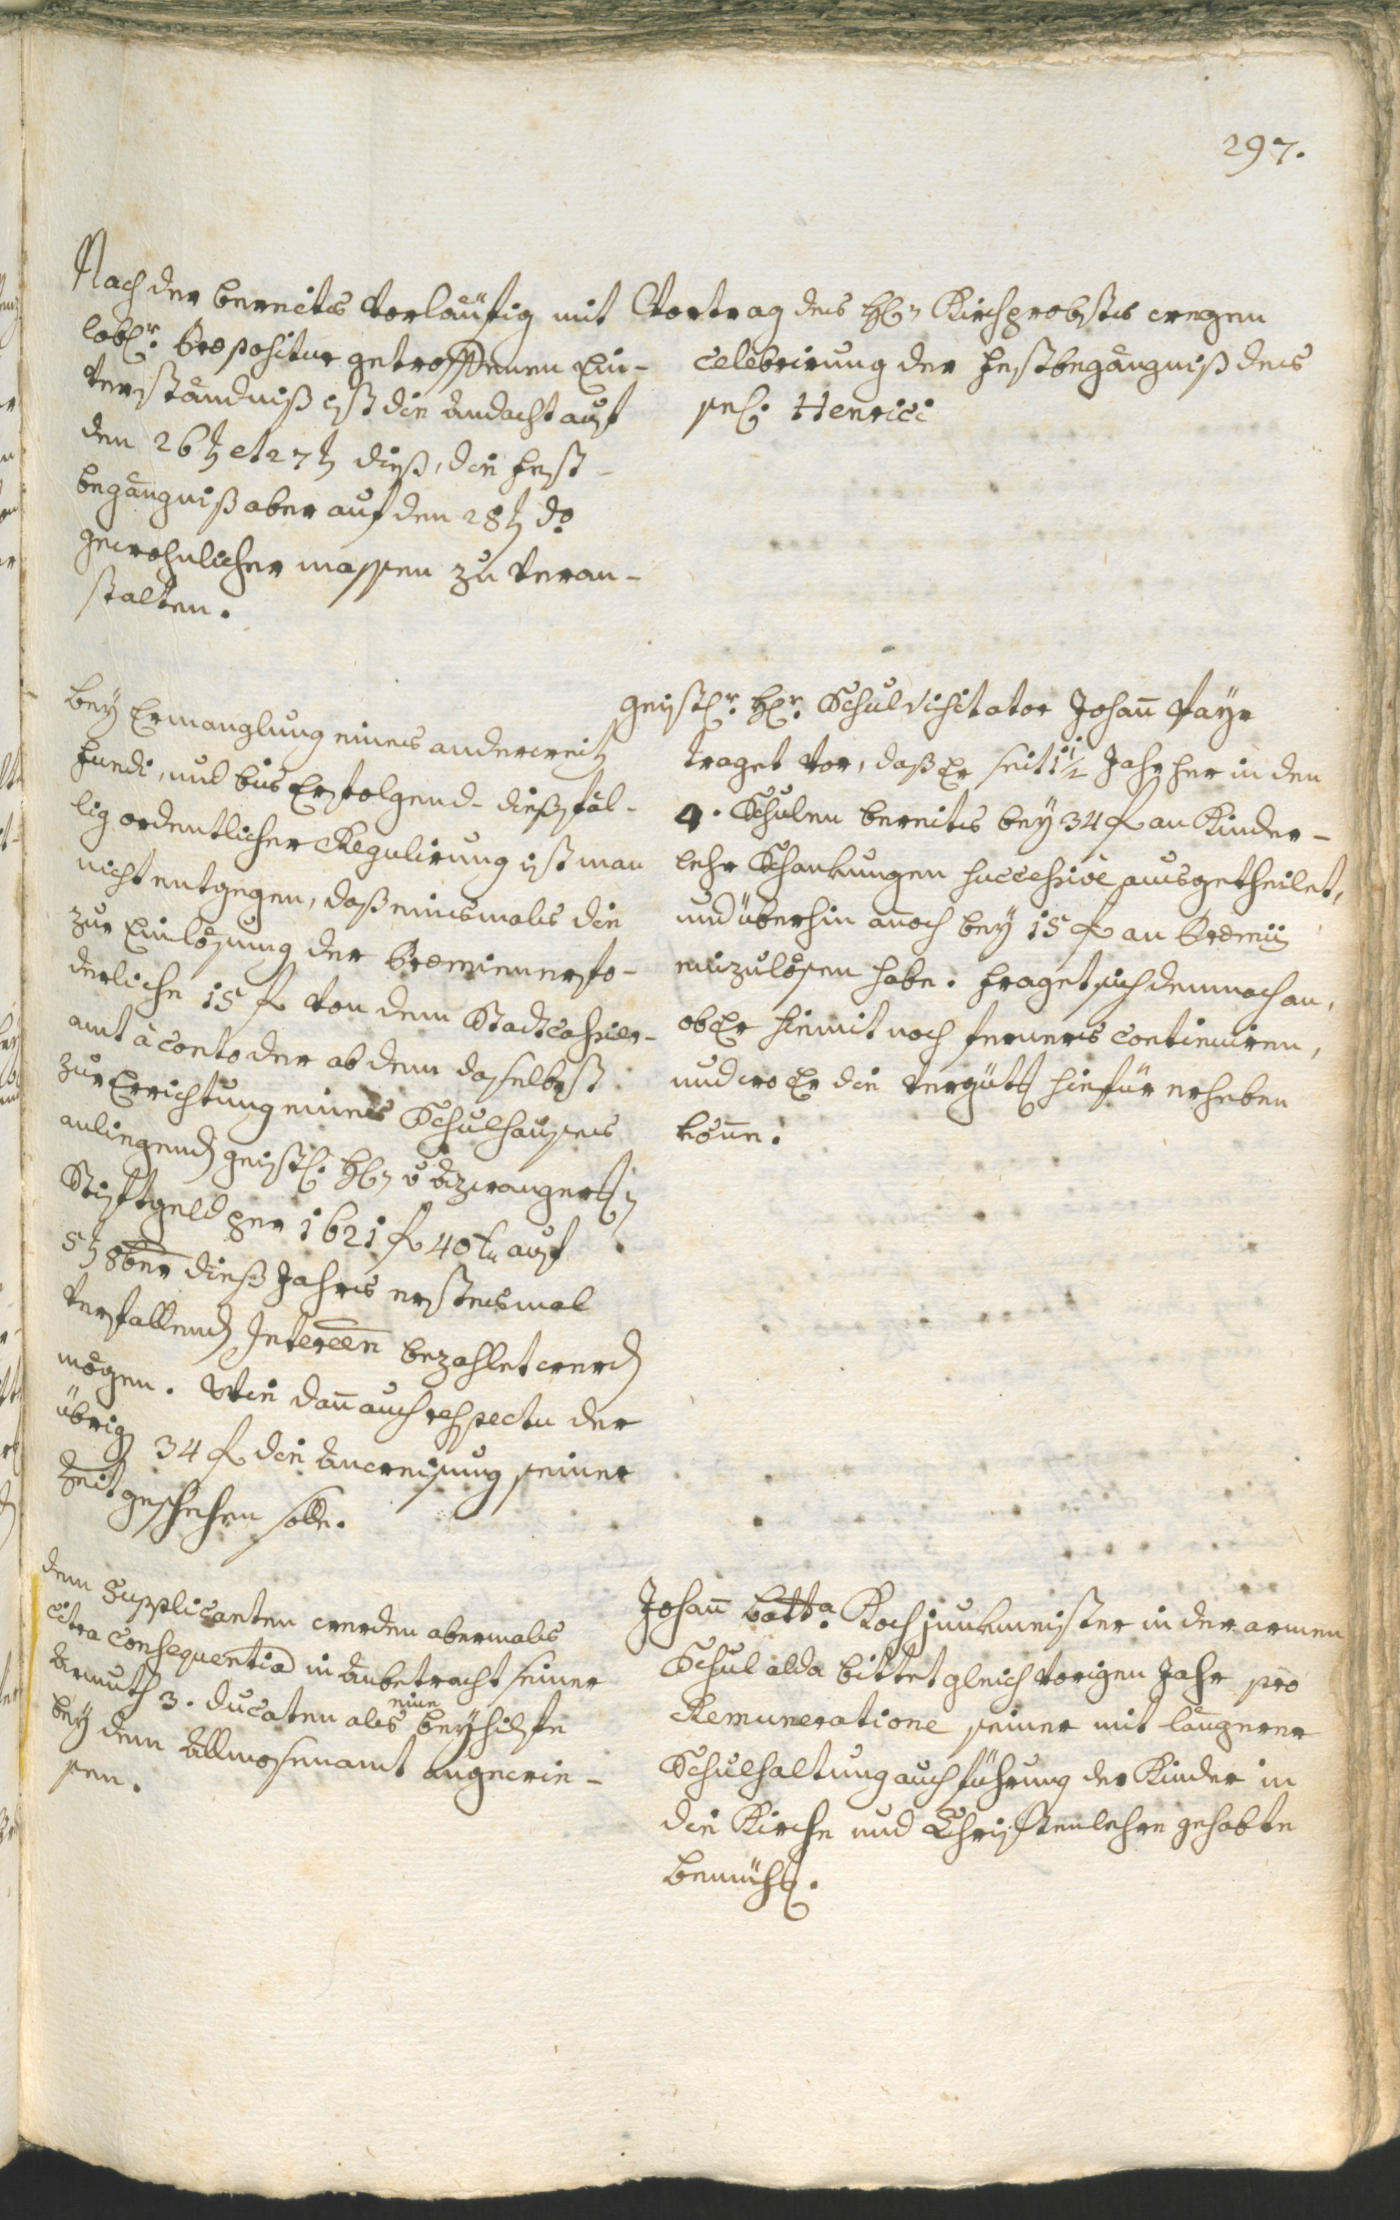 297.
Nach der bereits vorläufig mit
lobl.r Præpositur getroffenen Ein-
verständniß ist die Andacht auf
den 26t et 27t dieß, die Fest-
begängniß aber auf den 28t do
gewohnlicher massen zu veran-
stalten.
Vortrag des H: Kirchprobstes wegen
Celebrirung der Festbegängniß des
sel: Henrici
Bey Ermanglung eines anderweit
Fundi, und bis Erfolgend- dießfäl-
lig ordentlicher Regulirung ist man
nicht entgegen, daß einsmals die
zur Einlösung der Præmien erfo-
derliche 15 f von dem Stadtcassier-
amt à conto der ab dem daselbst
zur Errichtung eines Schulhauses
anliegend geistl: H: v
Stiftgeld per 1621 f 40 kr auf
5t 8ber dieß Jahrs erstesmal
verfallend Interessen bezahlet werd
mögen. Wie dan auch respectu der
übrig 34 f die Anweisung seiner
Zeit geschehen solle.
Geistl.r H.r Schulvisitator Johan Fayr
traget vor, daß Er seit 1 1/2 Jahr her in den
4. Schulen bereits bey 34 f an Kinder-
lehr Schankungen successive ausgetheilet,
und überhin anoch bey 15 f an Præmii
einzulösen habe. Fraget sich demnach an,
ob Er hiemit noch ferners continuiren,
und wo Er die Vergütt hiefür erheben
könne.
Dem Supplicanten werden abermals
citra consequentia in Anbetracht seiner
Armuth 3. Ducaten als eine Beyhilfe
bey dem Allmosenamt angewie-
sen.
Johan Batta: Koch junkmeister in der armen
Schul alda bittet gleich vorigen Jahr pro
Remuneratione seiner mit längerer
Schulhaltung auch Führung der Kinder in
die Kirche und Christenlehre gehabte
Bemüh.